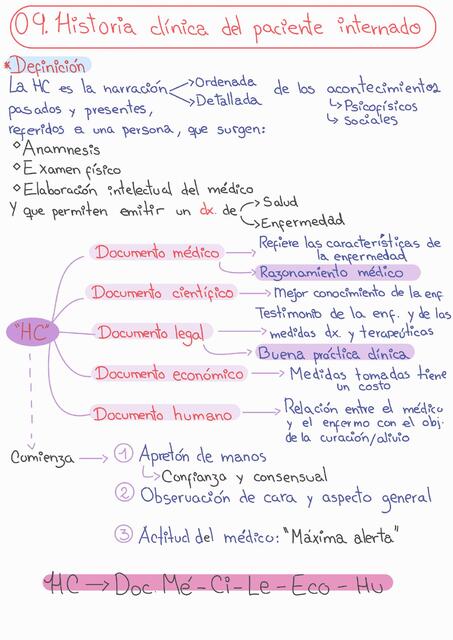 09. Historia clínica del paciente internado
*Definición
La HC es la narración → Ordenada
→ Detallada
de los acontecimientos
↳ Psicofísicos
↳ sociales
pasados y presentes,
referidos a una persona, que surgen:
◇ Anamnesis
◇ Examen físico
◇ Elaboración intelectual del médico
Y que permiten emitir un dx. de → Salud
→ Enfermedad
"HC"
Documento médico → Refiere las características de
la enfermedad
Razonamiento médico
Documento científico → Mejor conocimiento de la enf
Documento legal → Testimonio de la enf. y de las
medidas dx y terapeúticas
Buena práctica clínica
Documento económico → Medidas tomadas tiene
un costo
Documento humano → Relación entre el médico
y el enfermo con el obj.
de la curación/alivio
Comienza → 1 Apretón de manos
↳ Confianza y consensual
2 Observación de cara y aspecto general
3 Actitud del médico: "Máxima alerta"
HC → Doc. Mé - Ci - Le - Eco - Hu